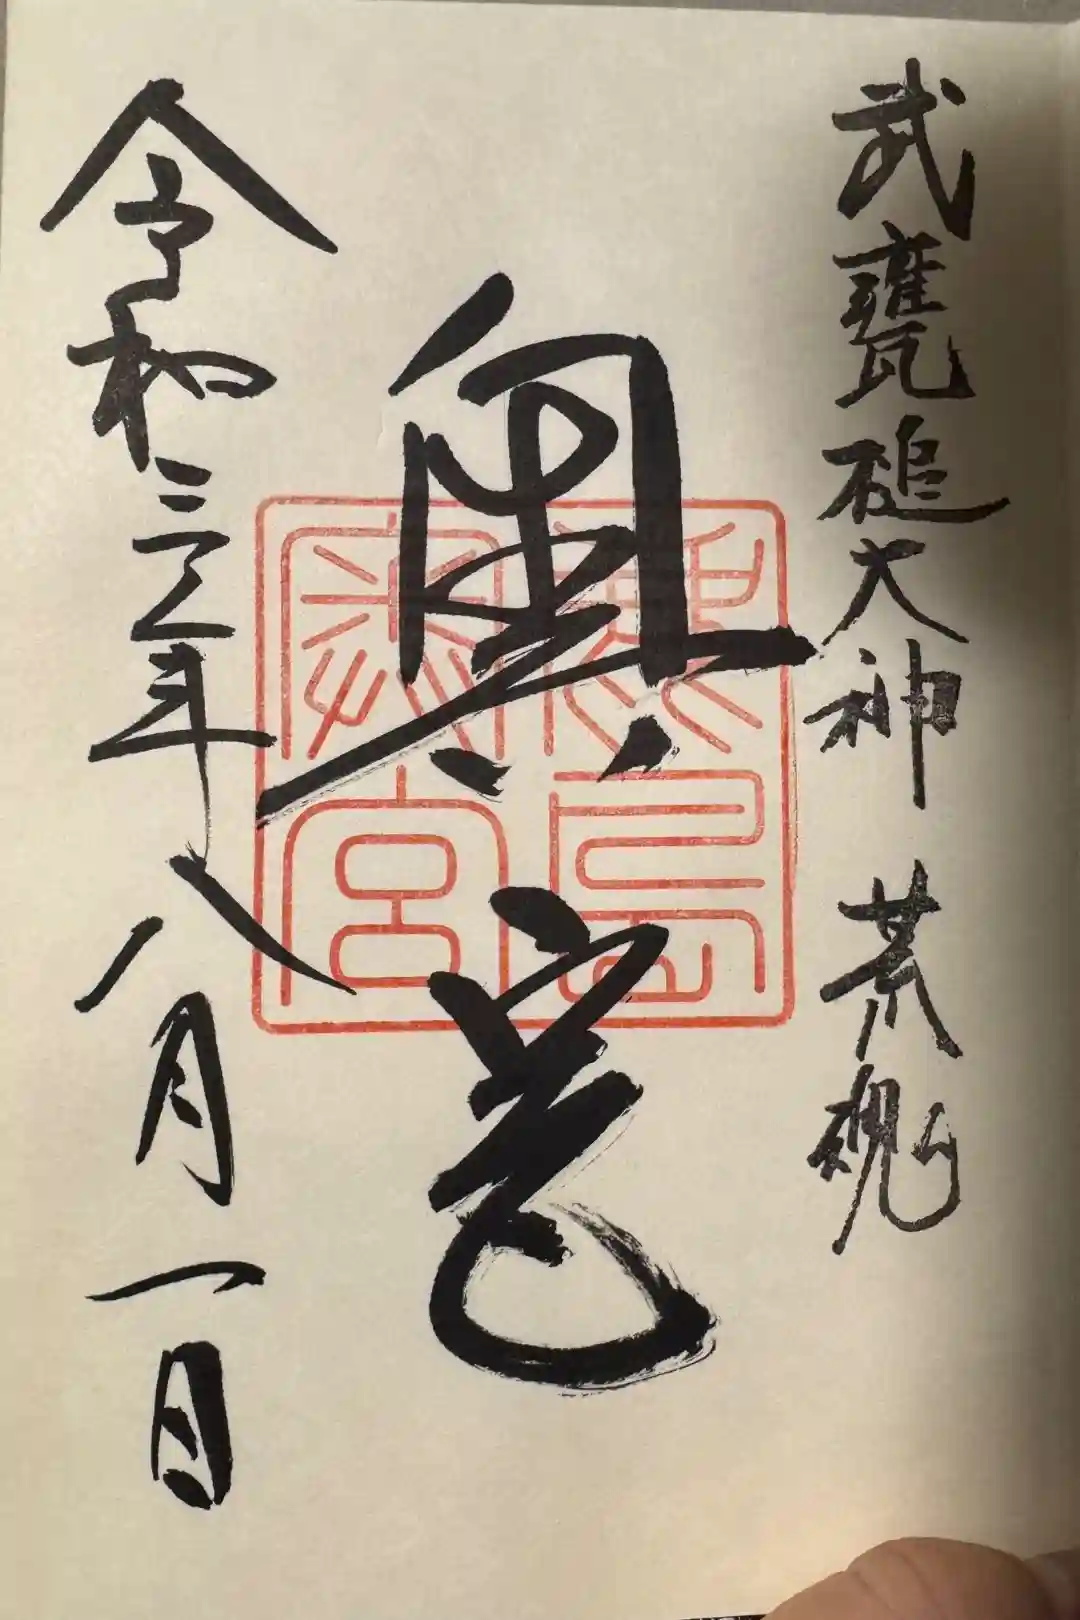 武甕槌大神 荒魂
奥宮
鹿島奥宮
令和三年八月一日